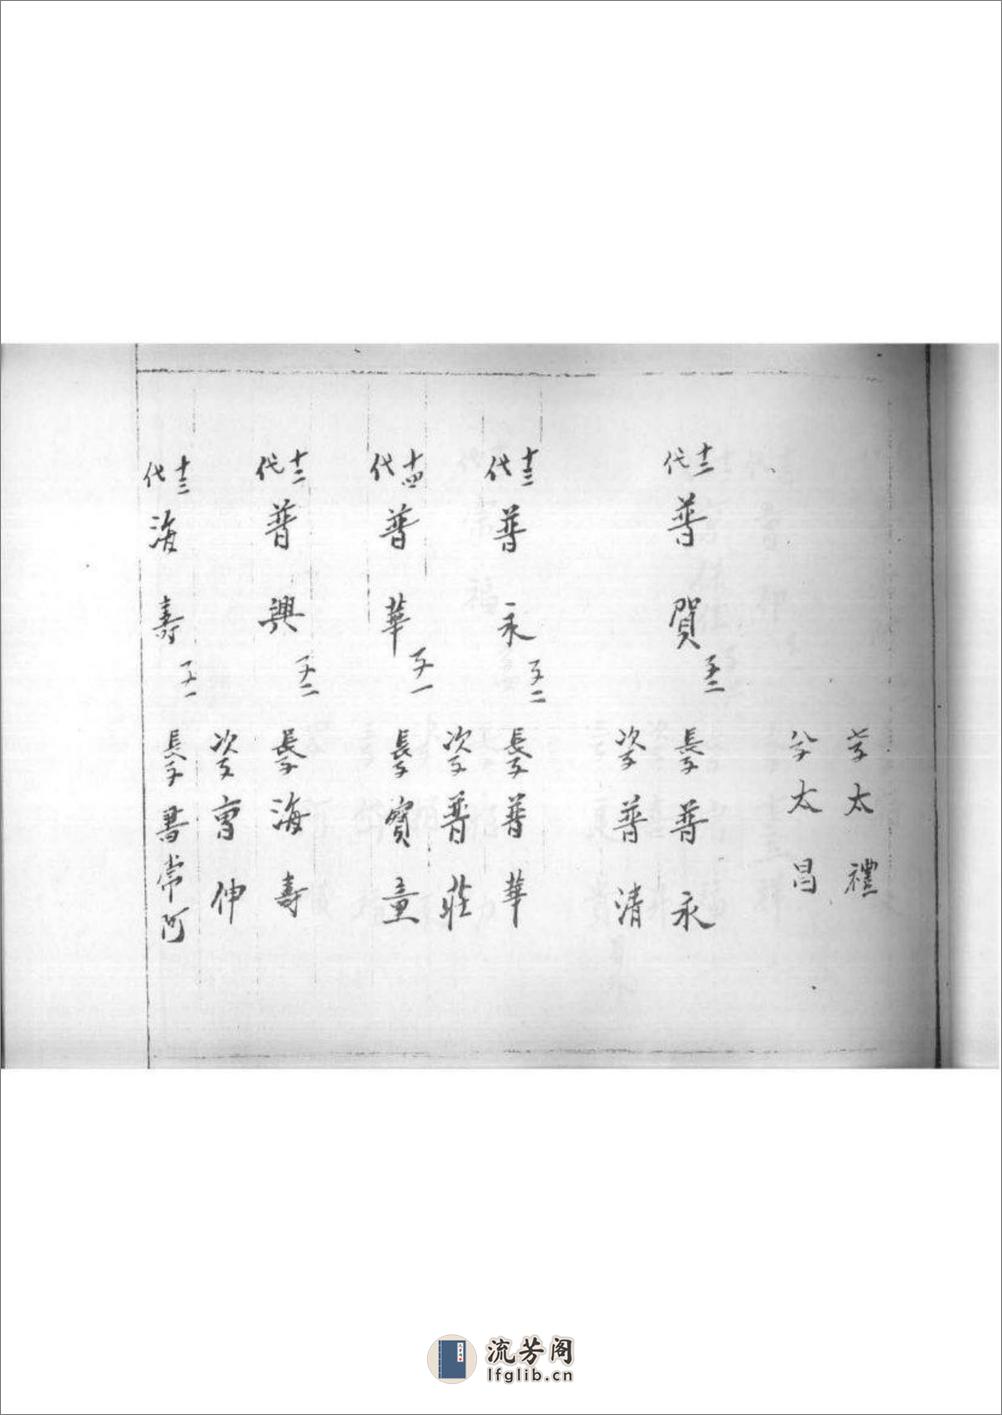 七子太禮
八子太昌
十二代普賀 子二
長子普永
次子普清
十三代普永 子二
長子普華
次子普莊
十四代普華 子一
長子寶童
十二代普興 子二
長子海壽
次子
十三代海壽 子一
長子書常阿
流芳阁
lfglib.cn